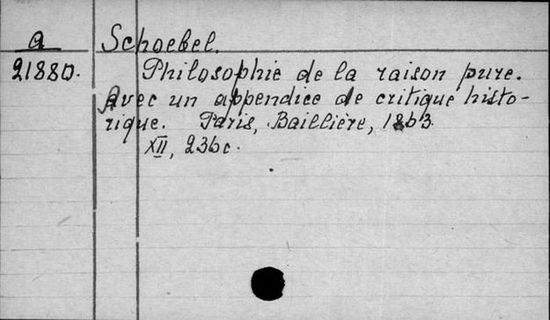 a Schoebel.
21880. Philosophie de la raison pure.
Avec un appendice de critique histo-
rique. Paris, Baillière, 1863.
XII, 236c.